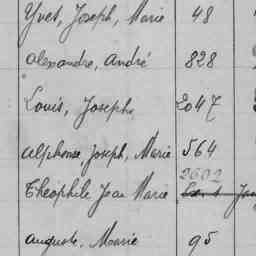 Yves, Joseph, Marie 48
Alexandre, André 828
Louis, Joseph 2047
Alphonse Joseph, Marie 564
Théophile Jean Marie 2602
Auguste, Marie 95